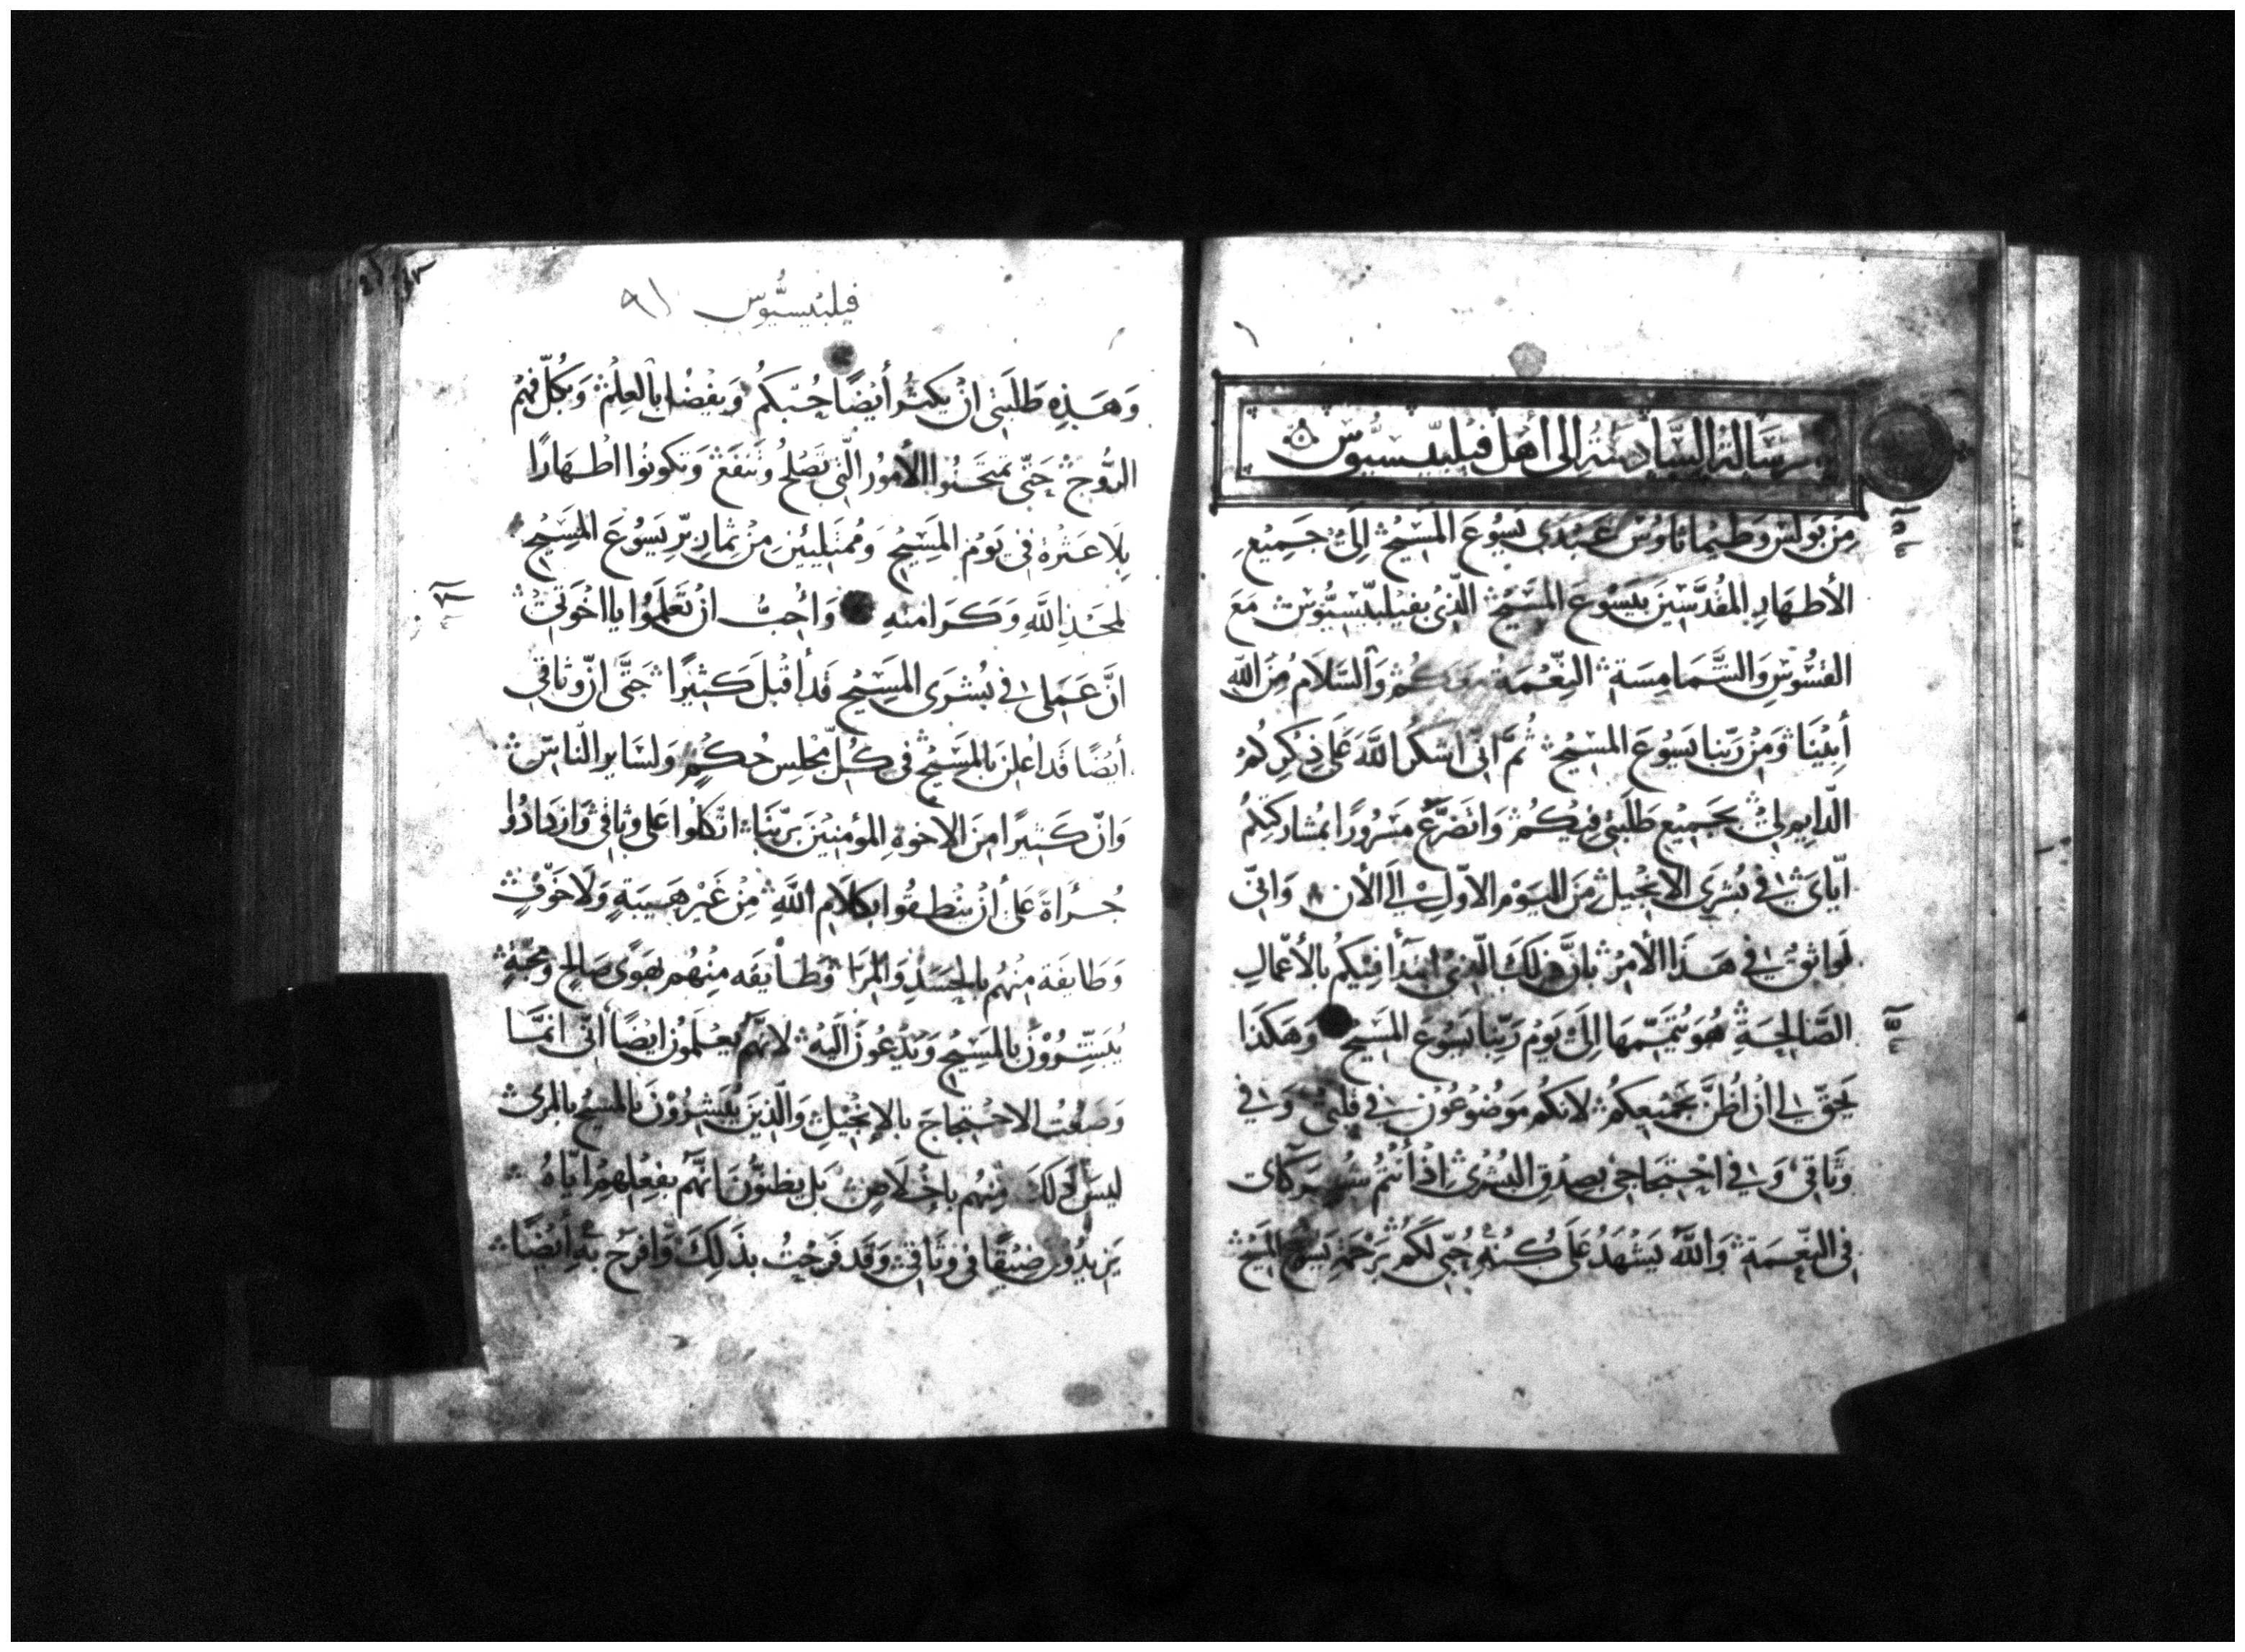 الرسالة السادسة إلى أهل فيلبيسيوس
مِن بولس وَطيماتاوُس عَبدَي يَسُوعَ المَسِيح إلى جَميعِ
الأطهَارِ المُقدَّسِين بيَسُوعَ المَسِيح الذين بفيلبيسيُوس مَعَ
القسُوسِ وَالشَّمَامِسَة النِّعْمَة مَعَكُم وَالسَّلامُ مِنَ اللَّه
أَبِينَا وَمِن رَبِّنا يَسُوعَ المسِيح ثُمَّ اني اشكرُ اللَّهَ عَلَى ذِكرِكُم
الدّايم لي بجَمِيع طَلبَتي فيكُم وَاتضَرَّع مَسرُورًا بمشاركتِكُم
ايّايَ في بُشرَى الانجيل مِنَ اليَوْمِ الاوّلِ إلى الأن وَانّي
لَواثقٌ في هَذَا الأمرُ بأنَّ ذلِكَ الّذي ابتدأ فيكُم بالأعمال
الصَّالحَةِ هُوَ يُتَمِّمهَا إلى يَوْم رَبِّنا يَسُوعَ المَسِيح وَهَكَذا
يَحقّ لي ان اظُنَّ بجَمِيعِكُم لانكُم مَوضُوعُون في قلبي وَفي
وَثاقي وَفي احتجاجي بصِدقِ البُشرَى اذ أنتُم شركاي
في النِّعمَة وَاللَّهُ يَشهَدُ عَلَى كُنهِ حُبّي لَكُم برَحمَةِ يَسُوع المَسِيح
فيلبيسيُّوس ٩١
وَهَذِهِ طَلبَتي ان يَكثُر أَيضًا حُبّكُم وَيفضُل بالعِلم وَبكُلّ فهم
الرُّوح حَتّى تمتَحنُوا الأمُور الّتي تَصلحُ وَتنفَع وَتكونُوا اطهَارًا
بلا عَثرة في يَوْم المَسِيح وَمُمتَليئين مِن ثمار بِرّ يَسُوعَ المَسِيح
لمَجدِ اللَّهِ وَكَرَامتهِ وَأُحبُّ ان تَعلمُوا يا اخوَتي
انَّ عَمَلي في بُشرَى المَسِيح قد أقبَلَ كَثيرًا حَتَّى انّ وثاقي
أيضًا قَد اعلِنَ بالمَسِيح في كُلّ مجلِس حُكم وَلسَاير النّاس
وَانّ كَثيرًا مِنَ الاخوةِ المؤمنِين برَبِّنَا اتّكلُوا عَلى وثاقي وَازدَادُوا
جُرأةً عَلَى أن ينطقُوا بكَلامِ اللَّهِ مِن غَير هَيبَةٍ وَلا خوفٍ
وَطايفَة مِنهُم بالحَسَدِ وَالمِرَا وَطايفَه مِنهُم بهَوًى صَالحٍ وَمحبّةٍ
يُبَشِّرُوْنَ بالمَسِيح وَيَدعُونَ اليهِ لانَّهُم يَعلَمُون ايضًا أنّي انمّا
وَضِعتُ للاحتجاج بالانجيل وَالّذينَ يُبَشِّرُوْنَ بالمسِيح بالمِرَى
ليسَ ذلكَ مِنهُم باخلاص بَل يظنُّونَ انّهُم بفِعلهِم ايّاهُ
يَزيدُون ضيقًا في وثاقي وَقد فرَحتُ بذَلِكَ وَأفرَح بهِ أيضًا